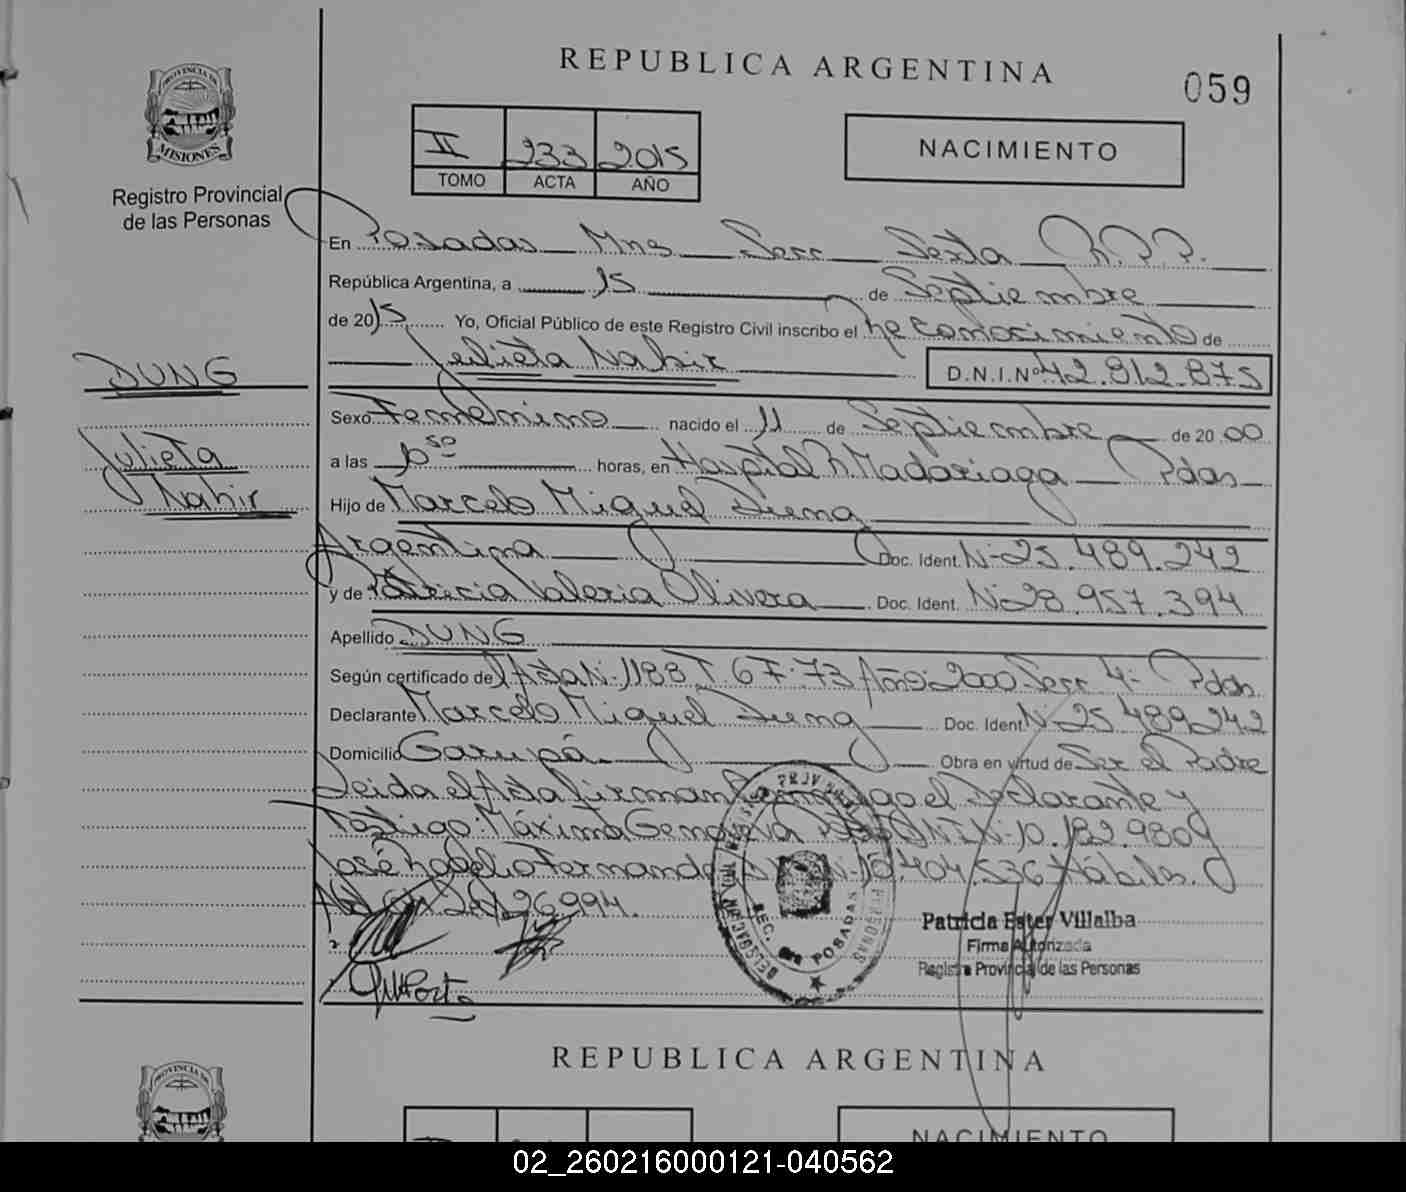 REPUBLICA ARGENTINA
059
PROVINCIA DE
MISIONES
Registro Provincial
de las Personas
II 233 2015
TOMO ACTA AÑO
NACIMIENTO
En Posadas Mns Secc Sexta R.P.P.
República Argentina, a 15 de Septiembre
de 2015 Yo, Oficial Público de este Registro Civil inscribo el Reconocimiento de
Julieta Nahir D.N.I.Nº 42.812.875
DUNG
Julieta
Nahir
Sexo Femenino nacido el 11 de Septiembre de 2000
a las 10 50 horas, en Hospital R. Madariaga Pdas
Hijo de Marcelo Miguel Dung
Argentina Doc. Ident. Nº 25.489.242
y de Patricia Valeria Olivera Doc. Ident. Nº 28.957.394
Apellido DUNG
Según certificado del Acta Nº 1188 T. 6 F. 73 Año 2000 Secc 4º Pdas
Declarante Marcelo Miguel Dung Doc. Ident. Nº 25.489.242
Domicilio Garupá Obra en virtud de Ser el Padre
Leida el Acta firman conmigo el Declarante y
Testigo: Máxima Genoveva DNI Nº 10.182.980 y
José Rogelio Fernando Nº 10.404.536 Hábiles.
26994.
SEC. POSADAS
PERSONAS
Patricia Ester Villalba
Firma Autorizada
Registro Provincial de las Personas
REPUBLICA ARGENTINA
PROVINCIA DE
NACIMIENTO
02_260216000121-040562